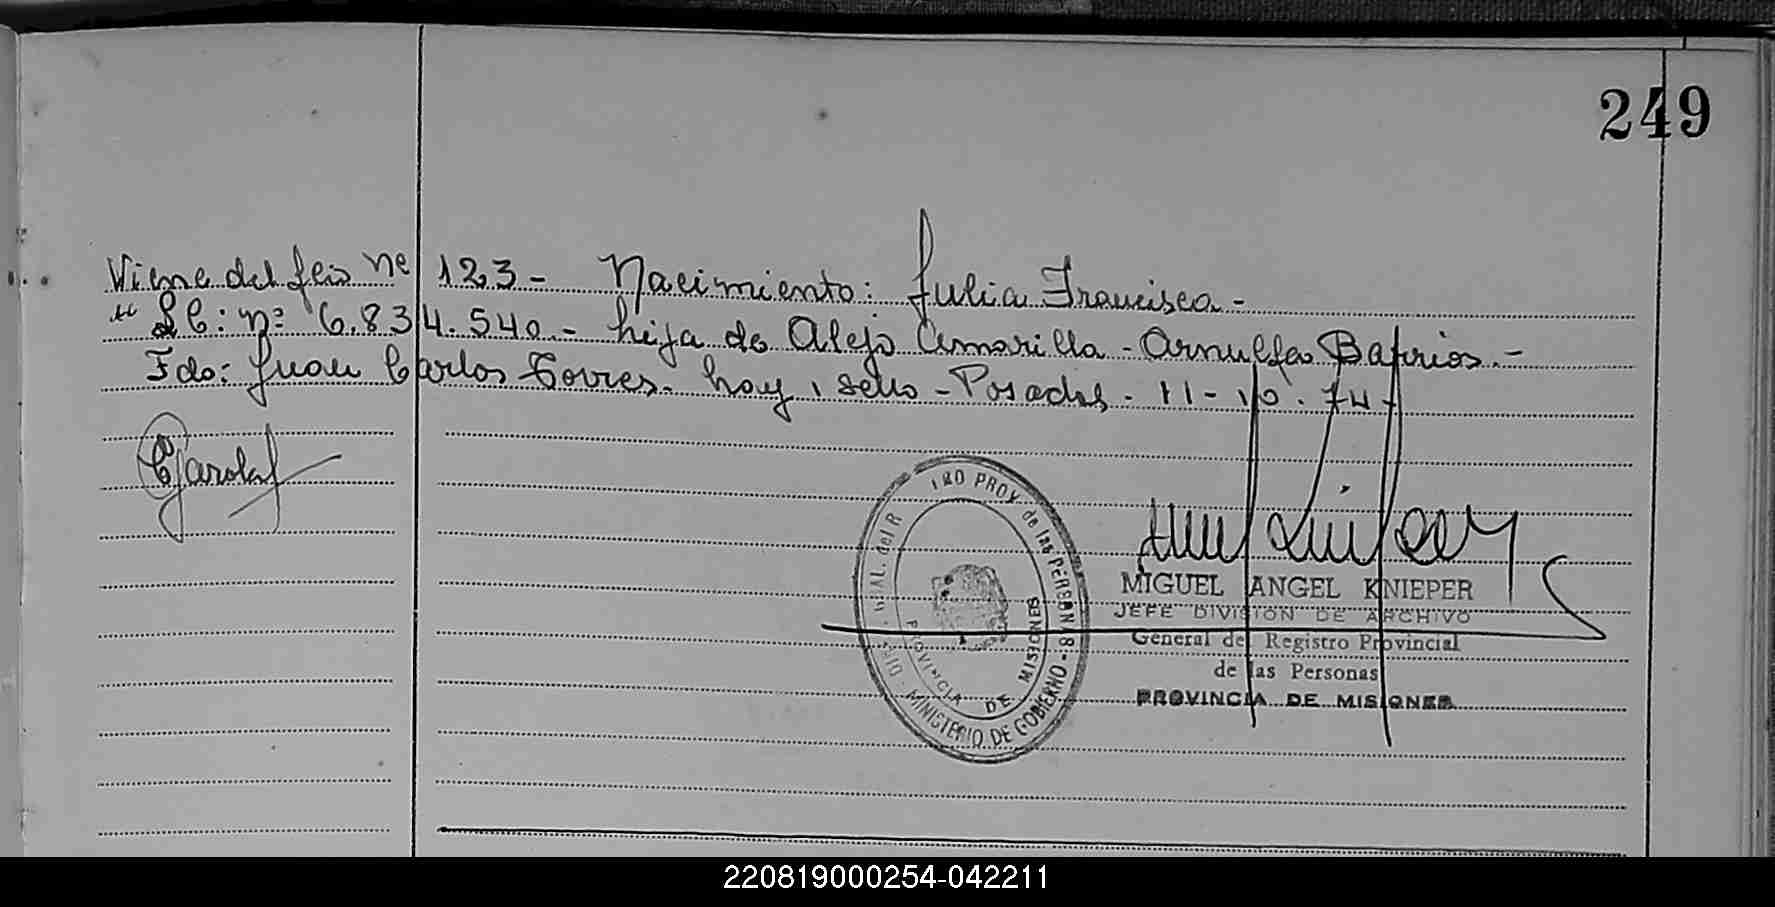 249
Viene del feio nº 123 - Nacimiento: Julia Francisca -
" LC: Nº 6.834.540.- hija de Alejo Amarilla - Arnulfa Barrios.-
Fdo: Juan Carlos Torres. hay 1 sello - Posadas. 11-10.74-
DIR. GRAL. del R PROV. de las PERSONAS - MINISTERIO DE GOBIERNO
PROVINCIA DE MISIONES
MIGUEL ANGEL KNIEPER
JEFE DIVISION DE ARCHIVO
General del Registro Provincial
de las Personas
PROVINCIA DE MISIONES
220819000254-042211